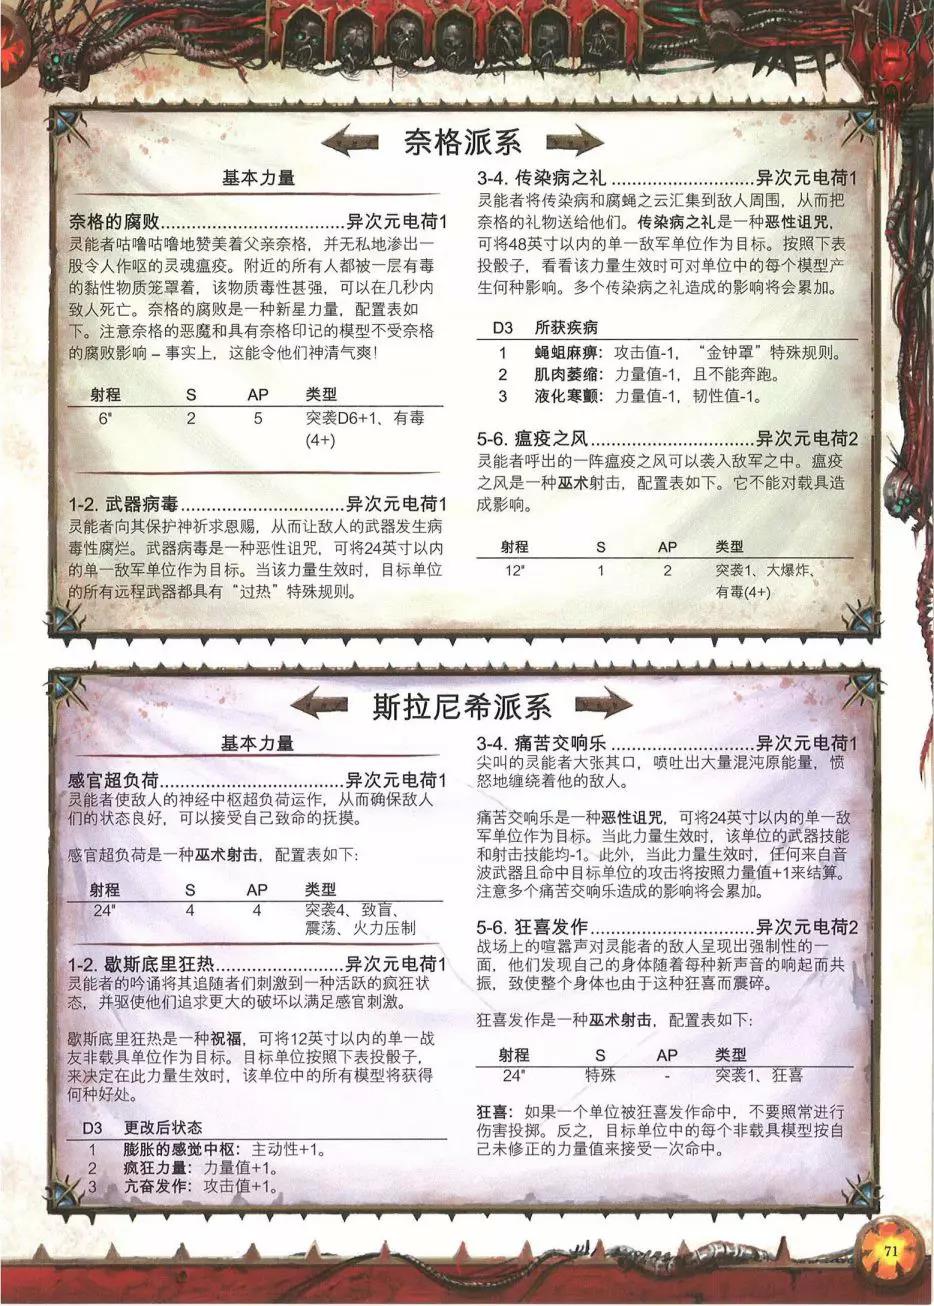 奈格派系
基本力量
奈格的腐败..............................异次元电荷1
灵能者咕噜咕噜地赞美着父亲奈格，并无私地渗出一
股令人作呕的灵魂瘟疫。附近的所有人都被一层有毒
的黏性物质笼罩着，该物质毒性甚强，可以在几秒内
致人死亡。奈格的腐败是一种新星力量，配置表如
下。注意奈格的恶魔和具有奈格印记的模型不受奈格
的腐败影响 – 事实上，这能令他们神清气爽！
射程 S AP 类型
6" 2 5 突袭D6+1、有毒
(4+)
1-2. 武器病毒..........................异次元电荷1
灵能者向其保护神祈求恩赐，从而让敌人的武器发生病
毒性腐烂。武器病毒是一种恶性诅咒，可将24英寸以内
的单一敌军单位作为目标。当该力量生效时，目标单位
的所有远程武器都具有“过热”特殊规则。
3-4. 传染病之礼.......................异次元电荷1
灵能者将传染病和腐蝇之云汇集到敌人周围，从而把
奈格的礼物送给他们。传染病之礼是一种恶性诅咒，
可将48英寸以内的单一敌军单位作为目标。按照下表
投骰子，看看该力量生效时可对单位中的每个模型产
生何种影响。多个传染病之礼造成的影响将会累加。
D3 所获疾病
1 蝇蛆麻痹：攻击值-1，“金钟罩”特殊规则。
2 肌肉萎缩：力量值-1，且不能奔跑。
3 液化寒颤：力量值-1，韧性值-1。
5-6. 瘟疫之风..........................异次元电荷2
灵能者呼出的一阵瘟疫之风可以袭入敌军之中。瘟疫
之风是一种巫术射击，配置表如下。它不能对载具造
成影响。
射程 S AP 类型
12" 1 2 突袭1、大爆炸、
有毒(4+)
斯拉尼希派系
基本力量
感官超负荷..............................异次元电荷1
灵能者使敌人的神经中枢超负荷运作，从而确保敌人
们的状态良好，可以接受自己致命的抚摸。
感官超负荷是一种巫术射击，配置表如下：
射程 S AP 类型
24" 4 4 突袭4、致盲、
震荡、火力压制
1-2. 歇斯底里狂热....................异次元电荷1
灵能者的吟诵将其追随者们刺激到一种活跃的疯狂状
态，并驱使他们追求更大的破坏以满足感官刺激。
歇斯底里狂热是一种祝福，可将12英寸以内的单一战
友非载具单位作为目标。目标单位按照下表投骰子，
来决定在此力量生效时，该单位中的所有模型将获得
何种好处。
D3 更改后状态
1 膨胀的感觉中枢：主动性+1。
2 疯狂力量：力量值+1。
3 亢奋发作：攻击值+1。
3-4. 痛苦交响乐.......................异次元电荷1
尖叫的灵能者大张其口，喷吐出大量混沌原能量，愤
怒地缠绕着他的敌人。
痛苦交响乐是一种恶性诅咒，可将24英寸以内的单一敌
军单位作为目标。当此力量生效时，该单位的武器技能
和射击技能均-1。此外，当此力量生效时，任何来自音
波武器且命中目标单位的攻击将按照力量值+1来结算。
注意多个痛苦交响乐造成的影响将会累加。
5-6. 狂喜发作..........................异次元电荷2
战场上的喧嚣声对灵能者的敌人呈现出强制性的一
面，他们发现自己的身体随着每种新声音的响起而共
振，致使整个身体也由于这种狂喜而震碎。
狂喜发作是一种巫术射击，配置表如下：
射程 S AP 类型
24" 特殊 - 突袭1、狂喜
狂喜：如果一个单位被狂喜发作命中，不要照常进行
伤害投掷。反之，目标单位中的每个非载具模型按自
己未修正的力量值来接受一次命中。
71